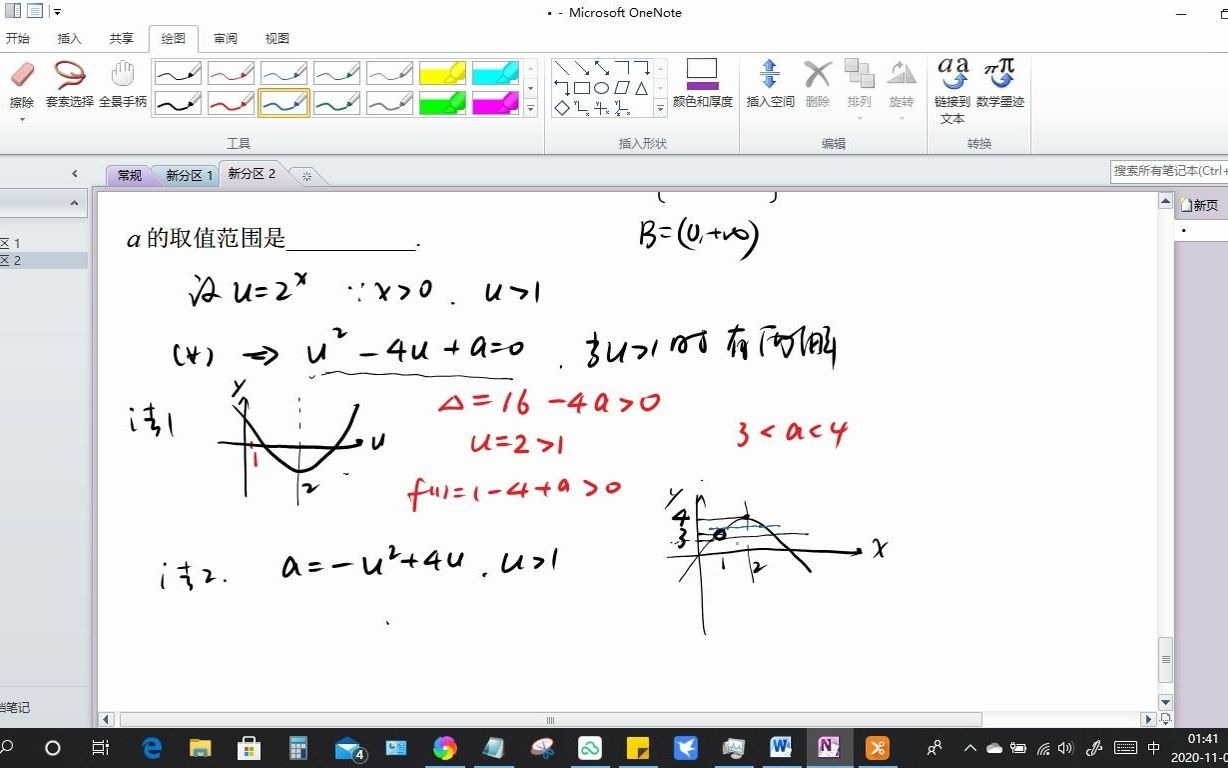 • - Microsoft OneNote
开始 插入 共享 绘图 审阅 视图
擦除 套索选择 全景手柄 颜色和厚度 插入空间 删除 排列 旋转 链接到文本 数学墨迹
工具 插入形状 编辑 转换
常规 新分区 1 新分区 2
搜索所有笔记本(Ctrl+
新页
区 1
区 2
B=(0,+∞)
a 的取值范围是__________.
设 u=2^x ∵x>0. u>1
(*) ⇒ u²-4u+a=0. 当u>1时有两解
法1
y
u
1
2
Δ=16-4a>0
u=2>1
f(1)=1-4+a>0
3<a<4
法2. a=-u²+4u. u>1
y
4
3
1 2
x
笔记
4
中
01:41
2020-11-0